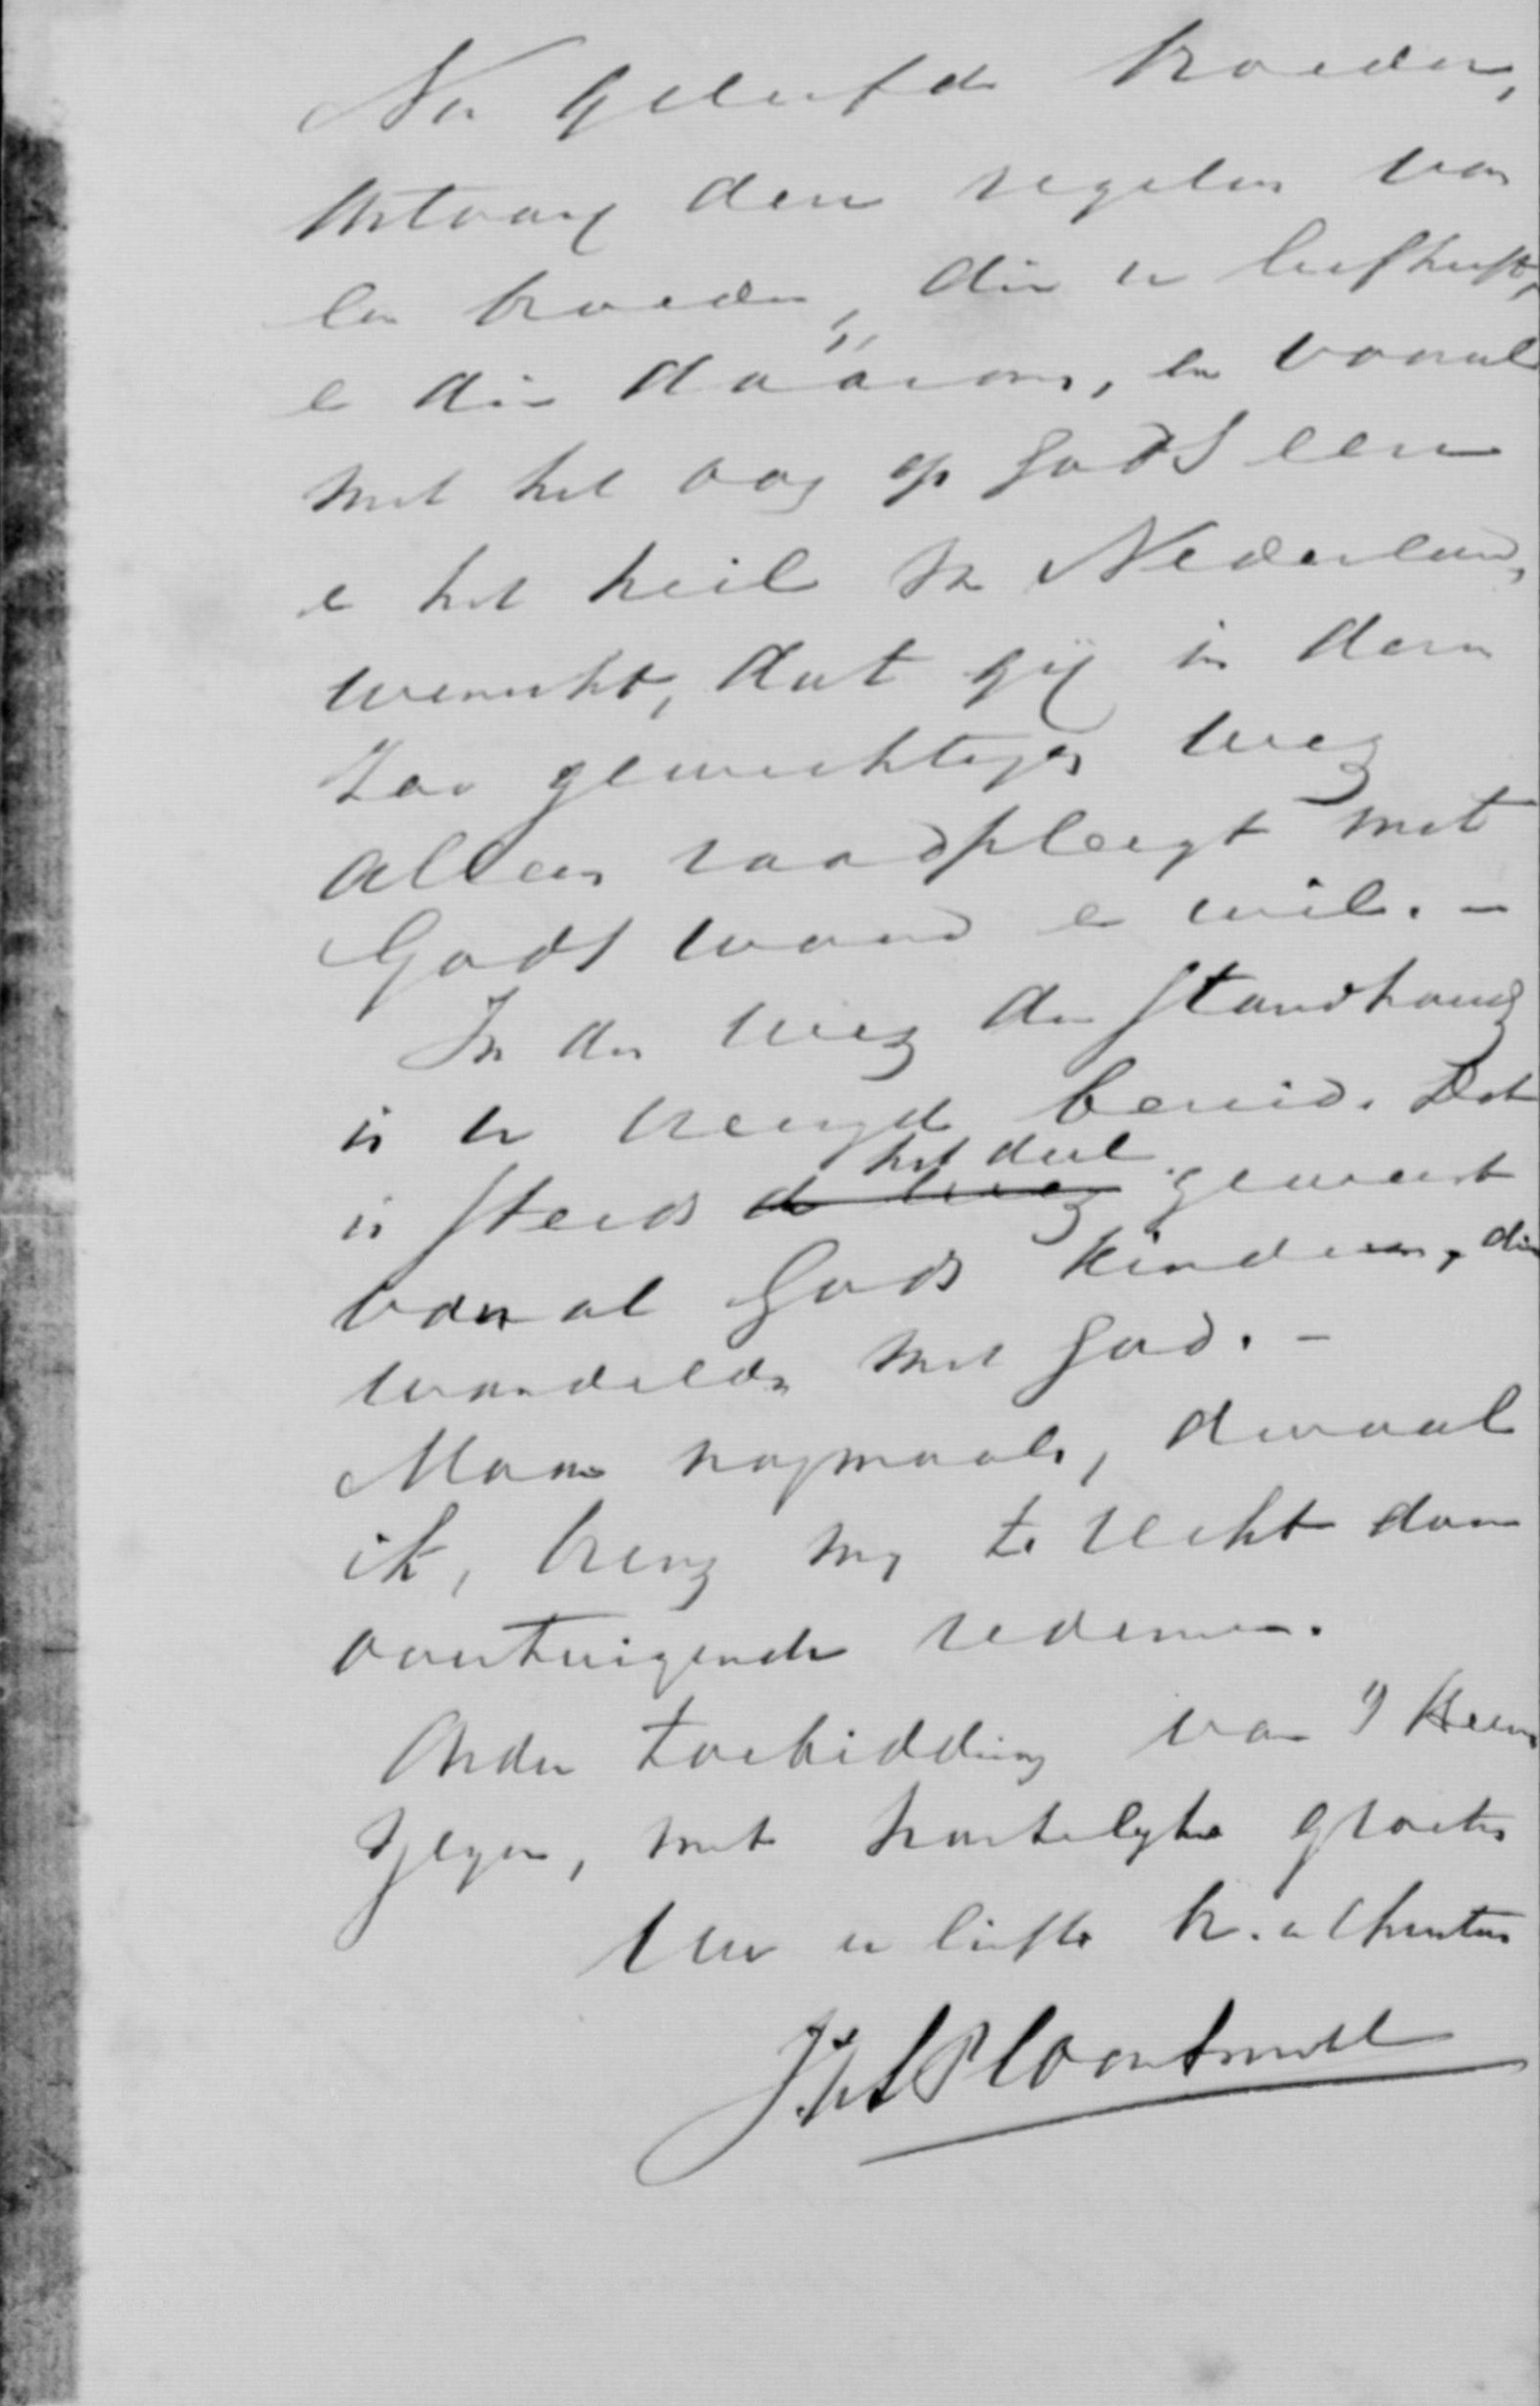 Nu geliefde broeder,
Ontvang deze regelen van
een broeder, die u liefheeft,
en die dáárom, en vooral
met het oog op Gods eere
en het heil in Nederland,
wenscht, dat gij in deze
zoo gewichtige weg
alleen raadpleegt met
Gods woord en wil. –
In den weg der
is er vreugde bereid. Dat
is steeds het deel geweest
van al Gods kinderen, die
wandelden met God. –
Maar nogmaals, dwaal
ik, breng mij te recht door
overtuigende redenen.
Onder toebidding van 's Heeren
zegen, met hartelijke groete
Uw u liefh. br. in Christus